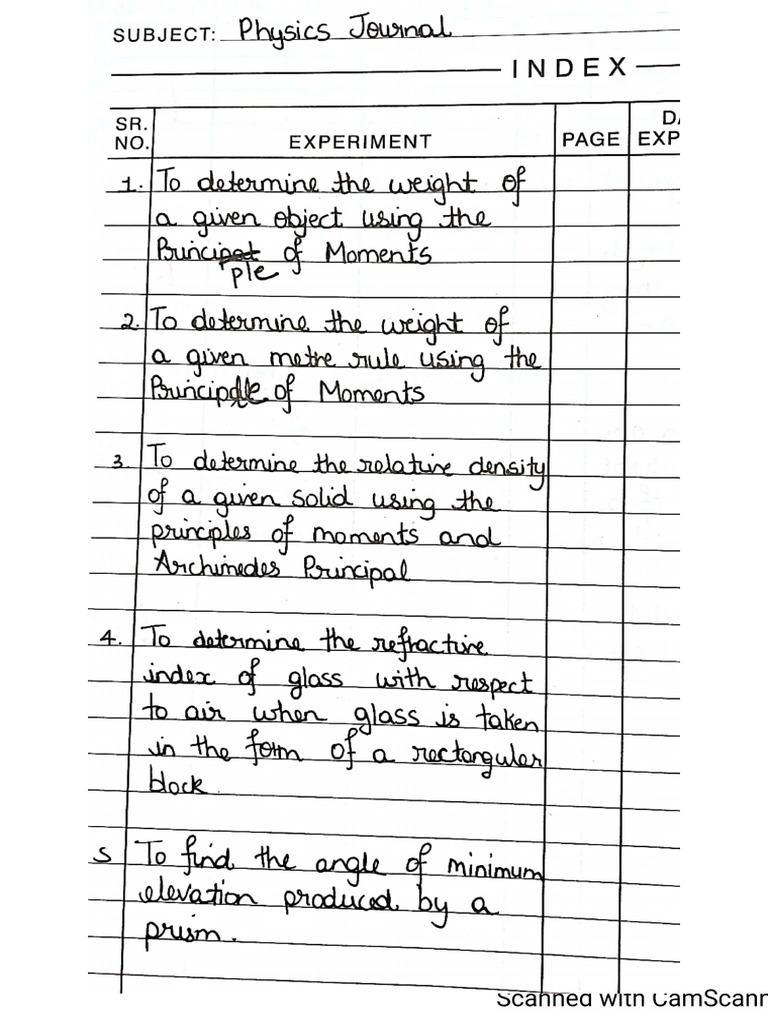 SUBJECT: Physics Journal
INDEX
SR. NO. EXPERIMENT PAGE DA EXP
1. To determine the weight of
a given object using the
Principle of Moments
2. To determine the weight of
a given metre rule using the
Principle of Moments
3. To determine the relative density
of a given solid using the
principles of moments and
Archimedes Principal
4. To determine the refractive
index of glass with respect
to air when glass is taken
in the form of a rectangular
block
5 To find the angle of minimum
elevation produced by a
prism.
Scanned with CamScann